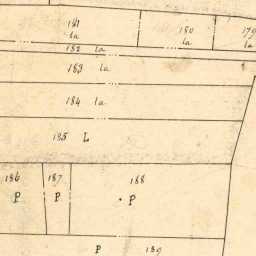 181 180 179
la la la
182 la
183 la
184 la
185 L
186 187 188
P P P
P 189